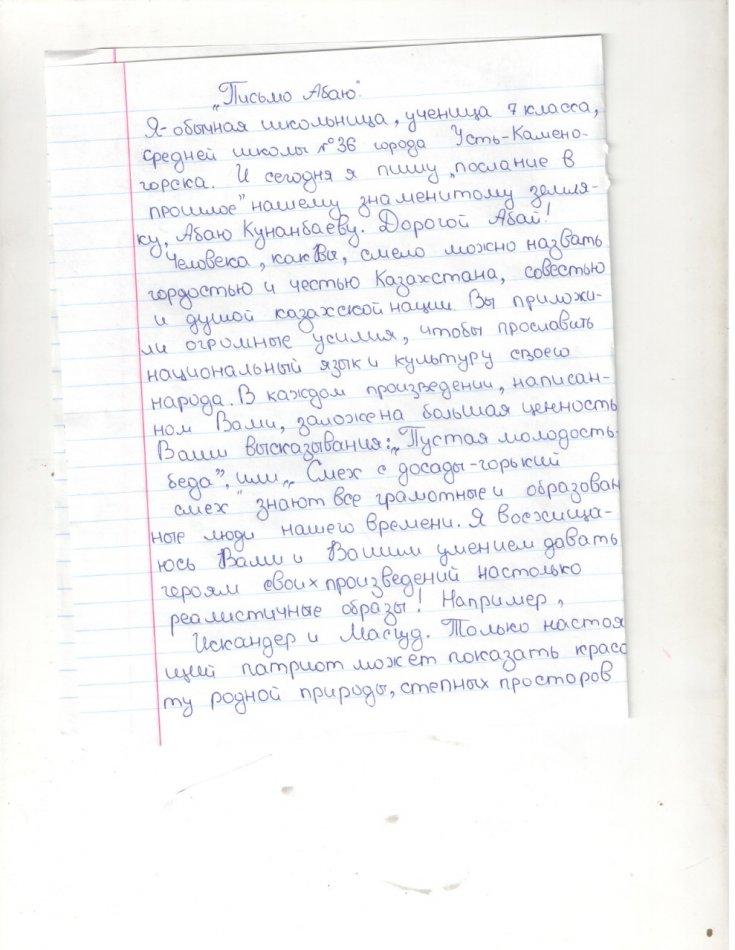 „Письмо Абаю".
Я-обычная школьница, ученица 7 класса,
средней школы №36 города Усть-Камено-
горска. И сегодня я пишу „послание в
прошлое" нашему знаменитому земля-
ку, Абаю Кунанбаеву. Дорогой Абай!
Человека, как Вы, смело можно назвать
гордостью и честью Казахстана, совестью
и душой казахской нации. Вы приложи-
ли огромные усилия, чтобы прославить
национальный язык и культуру своего
народа. В каждом произведении, написан-
ном Вами, заложена большая ценность
Ваши высказывания: „Пустая молодость-
беда", или „Смех с досады-горький
смех" знают все грамотные и образован
ные люди нашего времени. Я восхища-
юсь Вами и Вашим умением давать
героям своих произведений настолько
реалистичные образы! Например,
Искандер и Масгуд. Только настоя
щий патриот может показать красо
ту родной природы, степных просторов